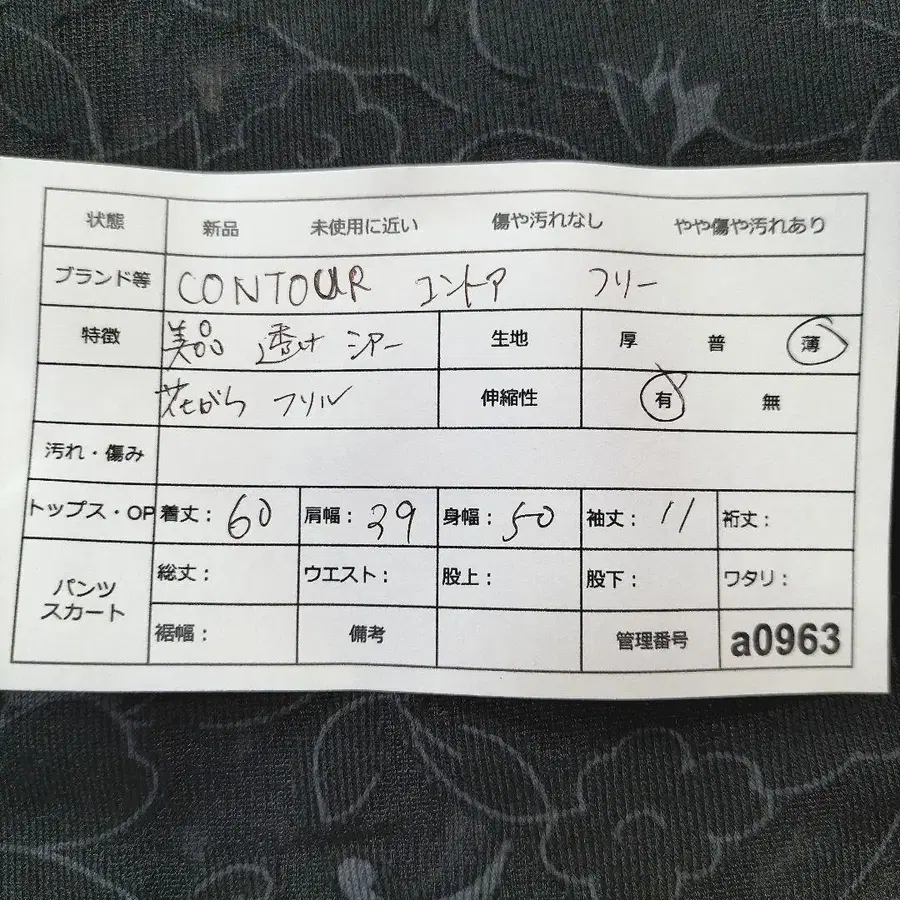 状態 新品 未使用に近い 傷や汚れなし やや傷や汚れあり
ブランド等 CONTOUR コントア フリー
特徴 美品 透け シアー 生地 厚 普 薄
花がら フリル 伸縮性 有 無
汚れ・傷み
トップス・OP 着丈: 60 肩幅: 39 身幅: 50 袖丈: 11 裄丈:
パンツ スカート 総丈: ウエスト: 股上: 股下: ワタリ:
裾幅: 備考 管理番号 a0963